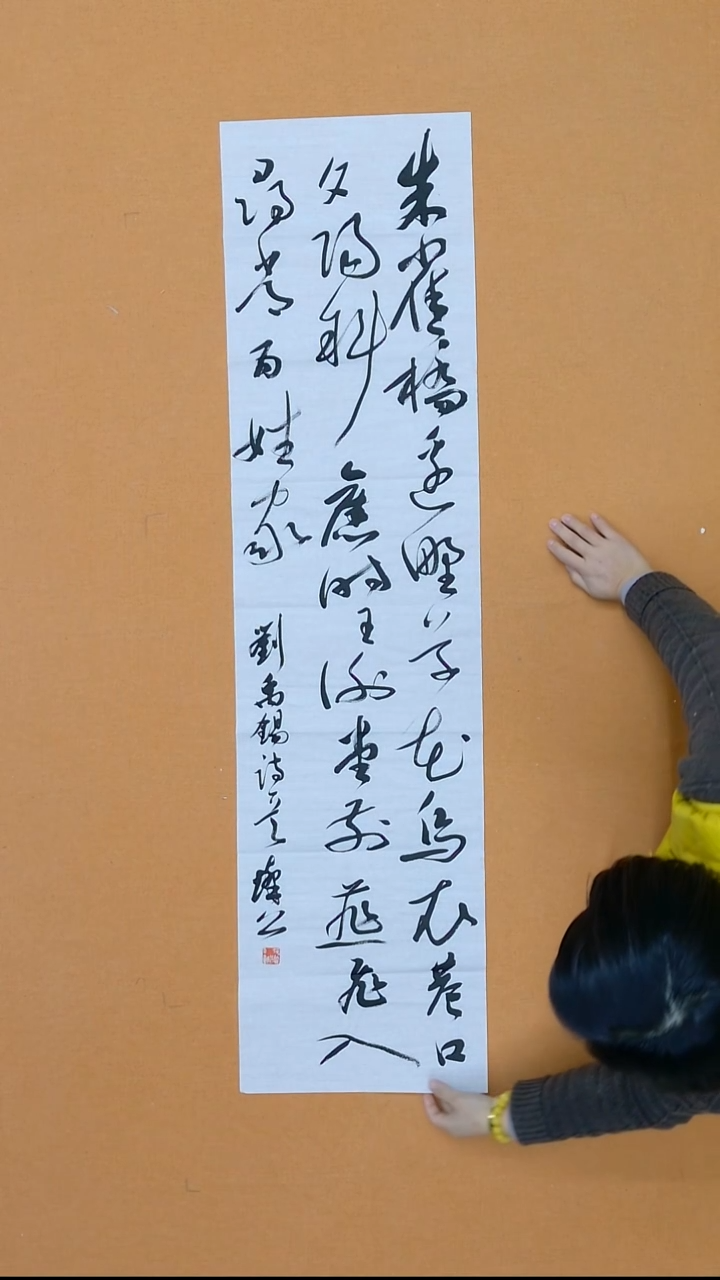 朱雀橋邊野草花烏衣巷口
夕陽斜舊時王謝堂前燕飛入
尋常百姓家 劉禹錫詩一首